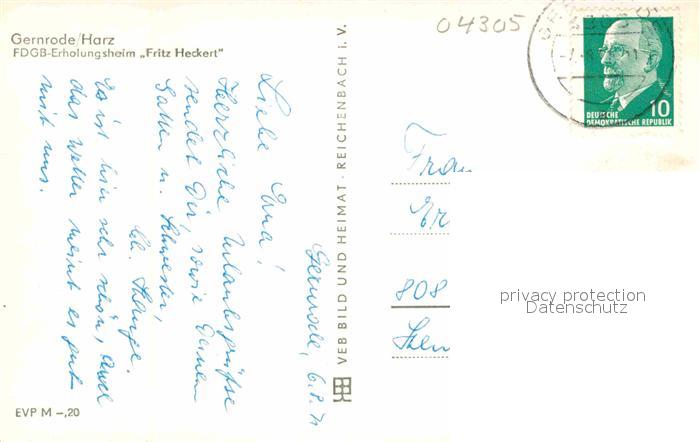 04305
Gernrode/Harz
FDGB-Erholungsheim „Fritz Heckert"
DEUTSCHE
DEMOKRATISCHE REPUBLIK
10
Gernrode, 6.8.71
Liebe Erna!
Herzliche Urlaubsgrüße
sendet Dir, sowie Deinem
Gatten u. Schwester,
Es ist hier sehr schön, auch
das Wetter meint es gut
mit uns.
VEB BILD UND HEIMAT · REICHENBACH i. V.
Frau
Er
808
privacy protection
Datenschutz
EVP M –,20